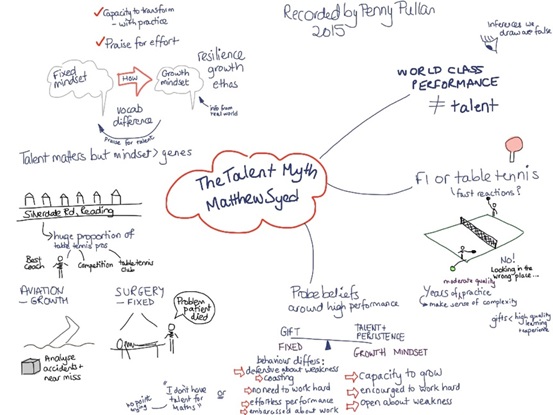 Recorded by Penny Pullan
2015
✓ Capacity to transform
- with practice
✓ Praise for effort
Fixed
mindset
How
Growth
mindset
resilience
growth
ethos
vocab
difference
praise for talent
info from
real world
Talent matters but mindset > genes
Silverdale Rd, Reading
huge proportion of
table tennis pros
Best
coach
competition
table tennis
club
AVIATION
- GROWTH
Analyse
accidents +
near miss
SURGERY
- FIXED
Problem
patient
died
The Talent Myth
Matthew Syed
Inferences we
draw are false
WORLD CLASS
PERFORMANCE
≠ talent
F1 or table tennis
fast reactions?
No!
Looking in the
wrong place...
moderate quality
Years of practice
make sense of complexity
gifts < high quality
learning
experience
Probe beliefs
around high performance
GIFT
TALENT +
PERSISTENCE
FIXED
GROWTH MINDSET
behaviour differs:
defensive about weakness
coasting
no need to work hard
effortless performance
embarrassed about work
Capacity to grow
encouraged to work hard
open about weakness
no point
trying
"I don't have
talent for
Maths"
or